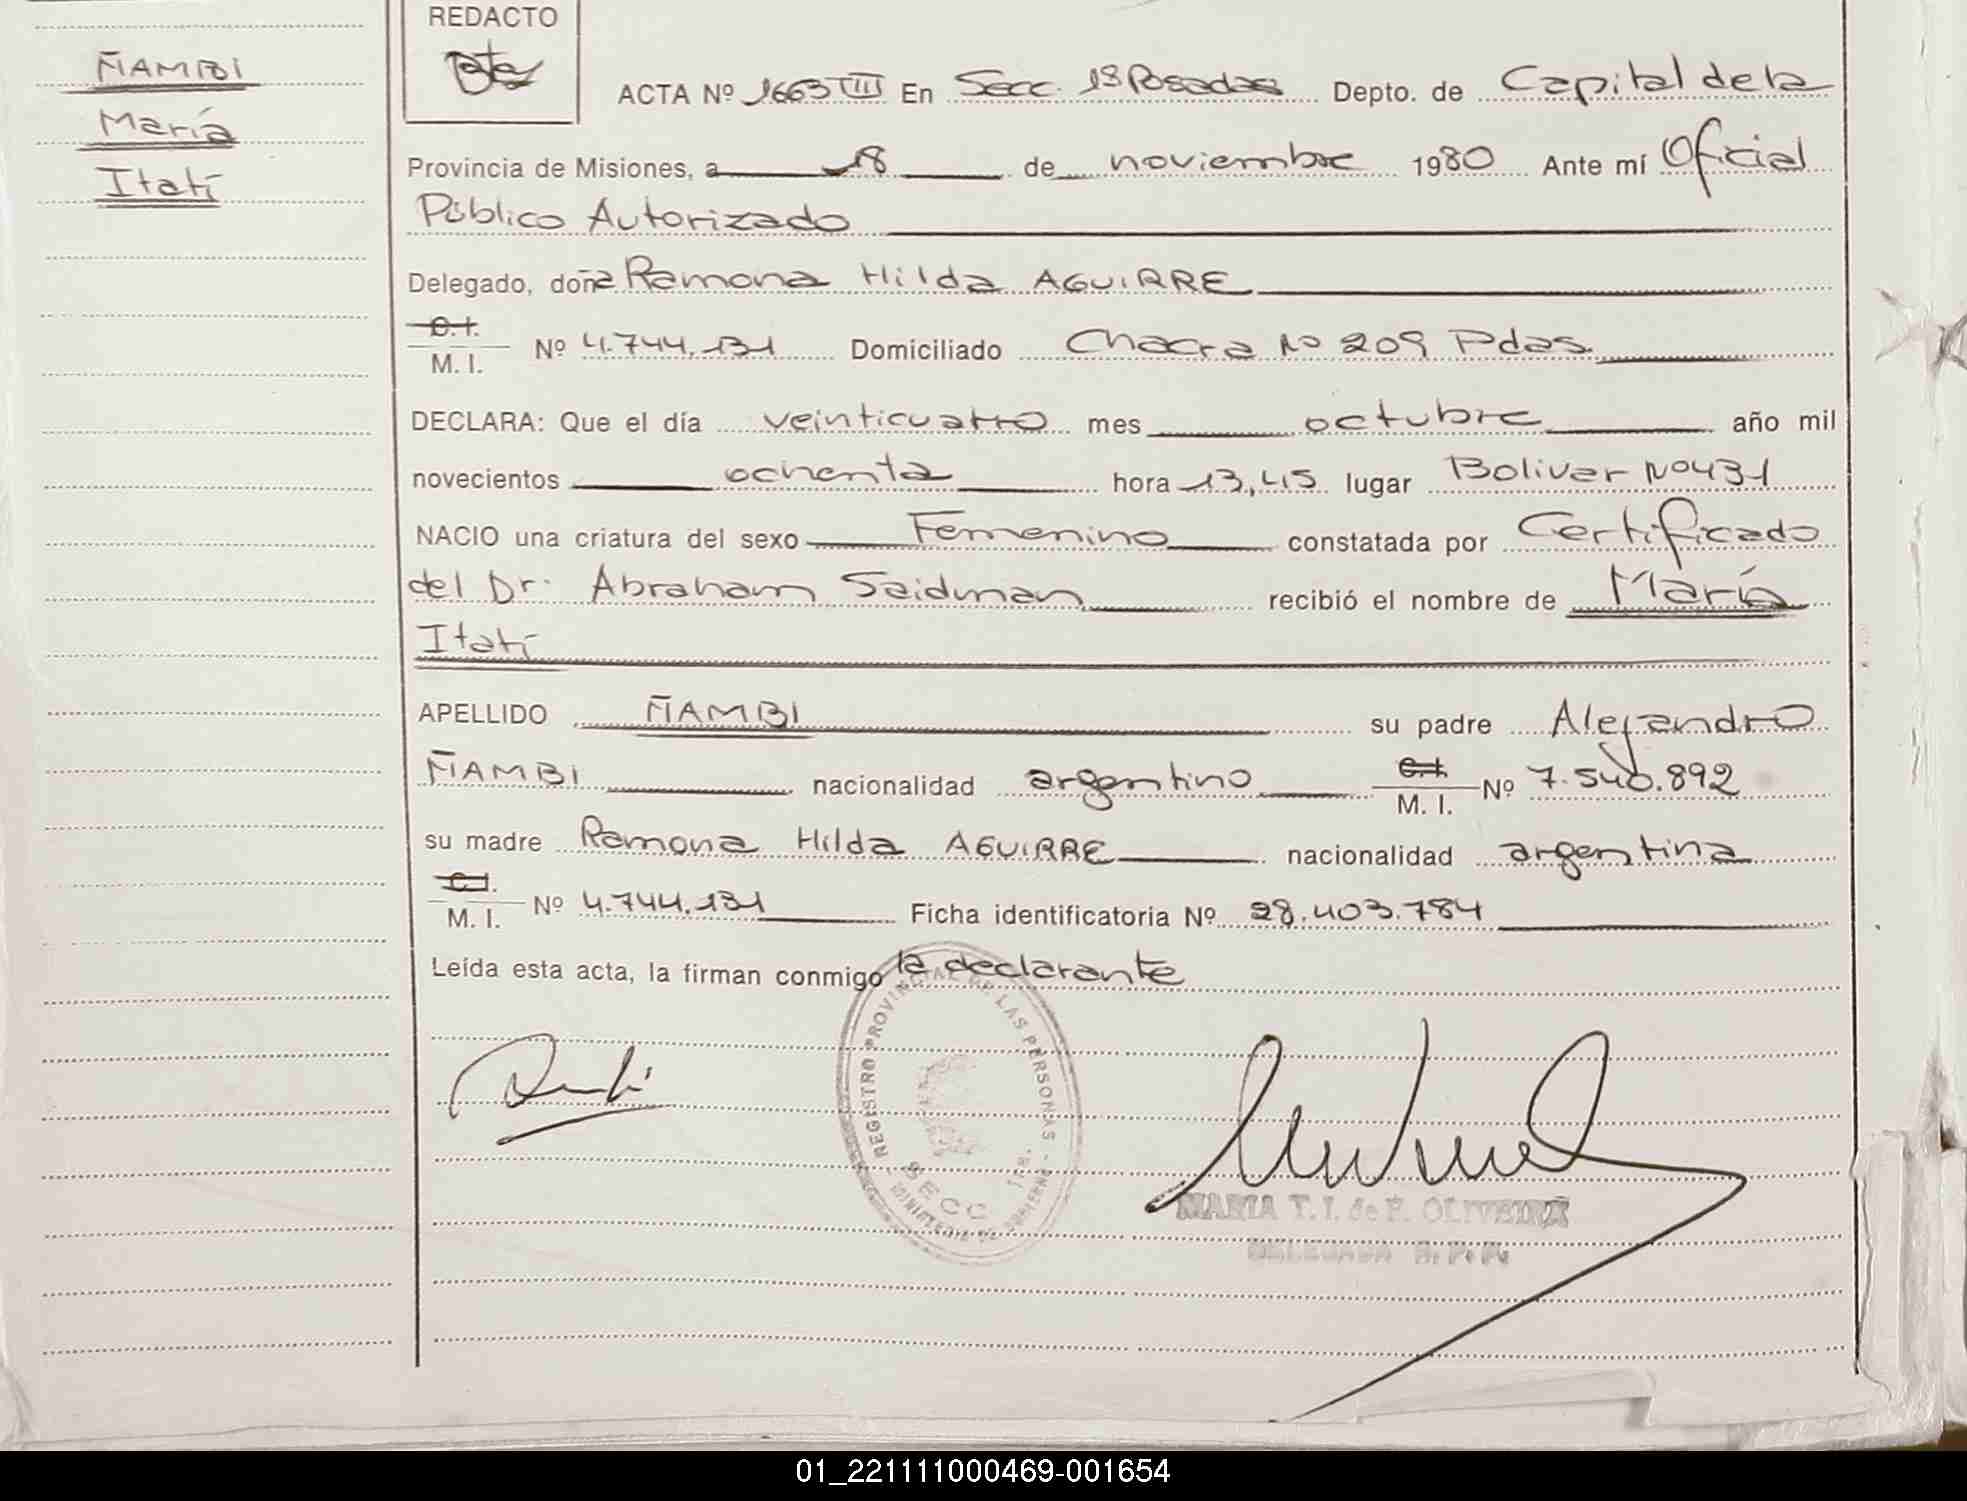 ÑAMBI
María
Itatí
REDACTO
ACTA Nº 1663 III En Secc. 1ª Posadas Depto. de Capital de la
Provincia de Misiones, a 18 de noviembre 1980 Ante mí Oficial
Público Autorizado
Delegado, doña Ramona Hilda AGUIRRE
C.I.
M. I. Nº 4.744.131 Domiciliado Chacra Nº 209 Pdas.
DECLARA: Que el día veinticuatro mes octubre año mil
novecientos ochenta hora 13,45 lugar Bolivar Nº 431
NACIO una criatura del sexo Femenino constatada por Certificado
del Dr. Abraham Saidman recibió el nombre de María
Itatí
APELLIDO ÑAMBI su padre Alejandro
ÑAMBI nacionalidad argentino C.I. M. I. Nº 7.540.892
su madre Ramona Hilda AGUIRRE nacionalidad argentina
C.I.
M. I. Nº 4.744.131 Ficha identificatoria Nº 28.403.784
Leída esta acta, la firman conmigo la declarante
REGISTRO PROVINCIAL DE LAS PERSONAS - MINISTERIO DE GOBIERNO -
SECC 1ra.
MARIA T. I. de F. OLIVEIRA
DELEGADA R. P. P.
01_221111000469-001654